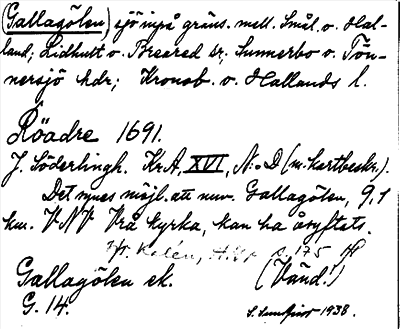 (Gallagölen) sjö inpå gräns. mell. Smål. o. Hal-
land; Lidhult o. Breared sr; Sunnerbo o. Tön-
nersjö hdr; Kronob. o. Hallands l.
Röadre 1691.
J. Söderlingh. Kr.A, XVI, N:o D (m. kartbeskr.).
Det synes möjl. att nuv. Gallagölen, 9,1
km. V NV Vrå kyrka, kan ha åsyftats.
Kalén, s. 175
Gallagölen ek. (Vänd!)
G. 14. 1938.